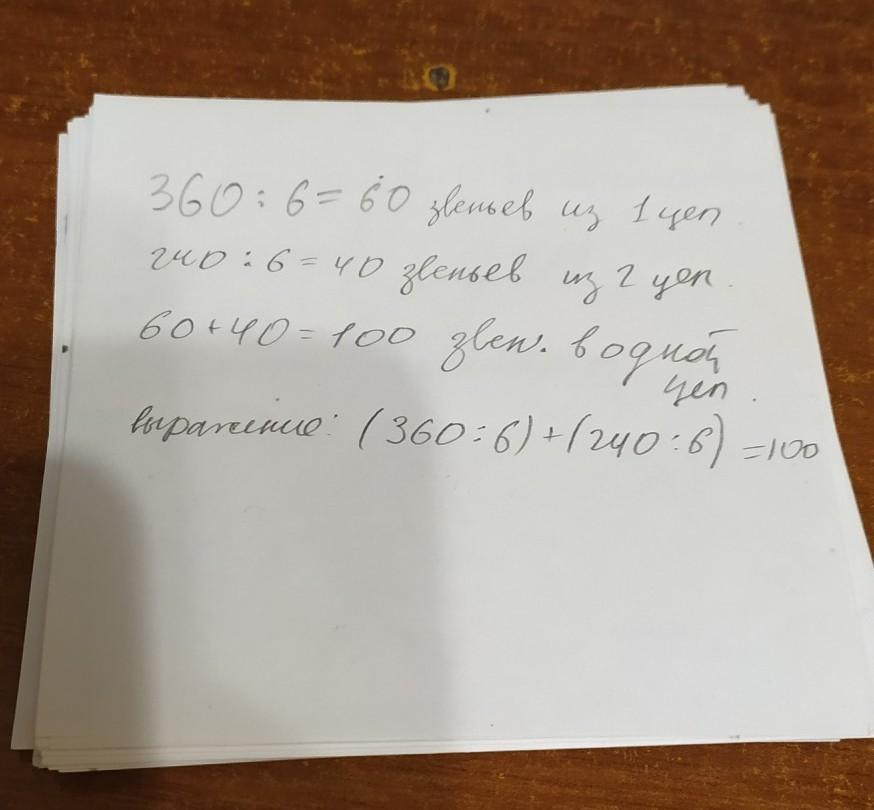 360 : 6 = 60 звеньев из 1 цеп
240 : 6 = 40 звеньев из 2 цеп.
60 + 40 = 100 звен. в одной
цеп.
выражение: (360 : 6) + (240 : 6) = 100